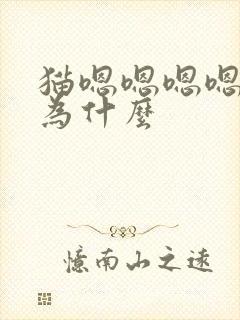 猫嗯嗯嗯嗯
為什麼
憶南山之遠